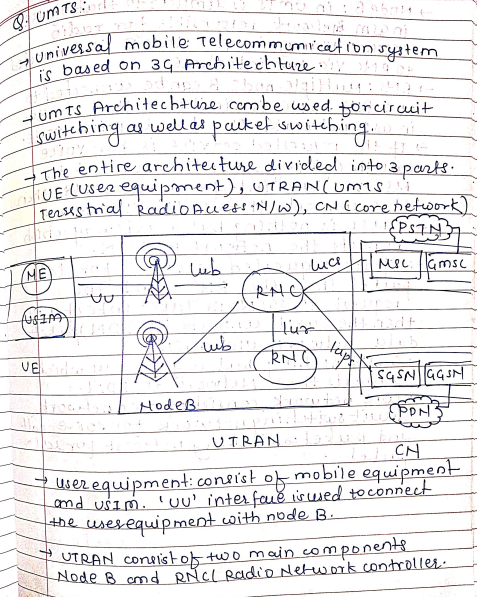 Q. UMTS:
→ Universal mobile Telecommunication system
is based on 3G Architechture.
→ UMTS Architechture canbe used forcircuit
switching as wellas packet switching.
→ The entire architecture divided into 3 parts.
UE (User equipment), UTRAN (UMTS
Terrestrial RadioAccess N/W), CN (core network)
PSTN
ME
Iub
RNC
Iucs
MSC
GMSC
UU
USIM
Iub
Iur
RNC
Iups
SGSN
GGSN
UE
NodeB
PDN
UTRAN
CN
→ user equipment: consist of mobile equipment
and USIM. 'UU' interface is used to connect
the user equipment with node B.
→ UTRAN consist of two main components
Node B and RNC( Radio Network controller.